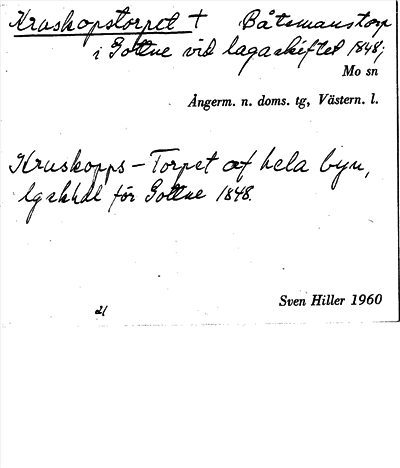 Kruskopstorpet + Båtsmanstorp
i Gottne vid lagaskiftet 1848;
Mo sn
Ångerm. n. doms. tg, Västern. l.
Kruskopps-Torpet af hela byn,
lgskhdl för Gottne 1848.
Sven Hiller 1960